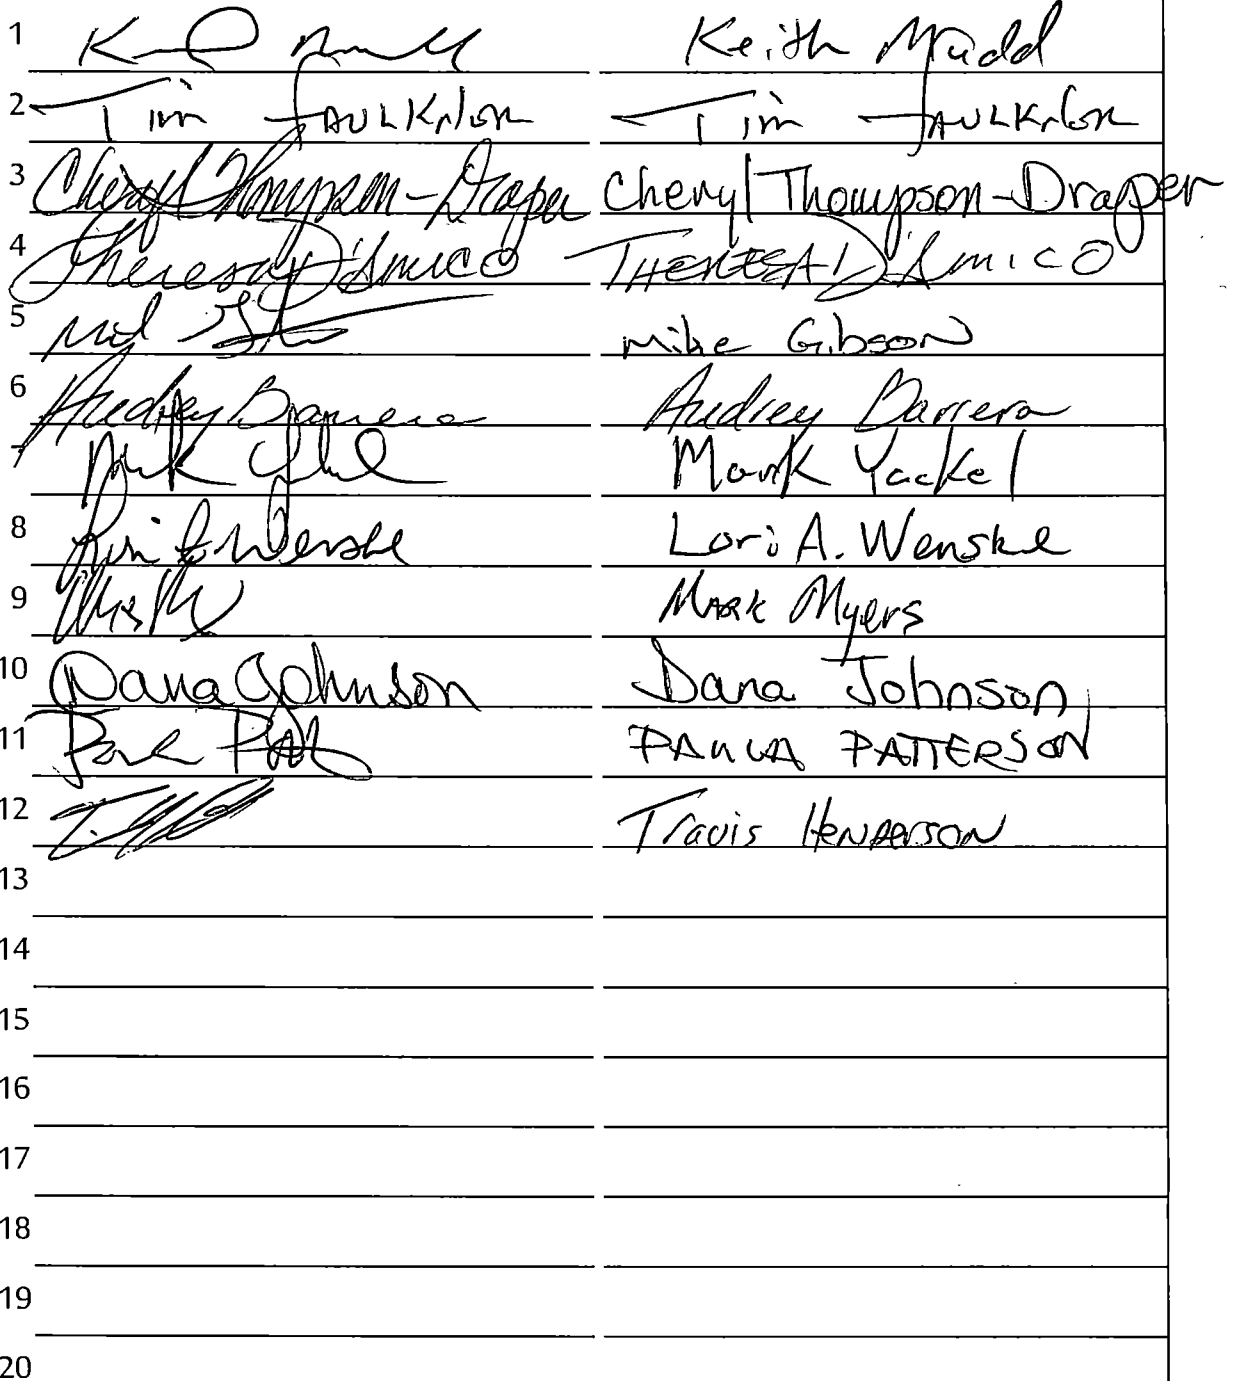 1 Keith Mudd
2 Tim Faulknor Tim Faulknor
3 Cheryl Thompson-Draper Cheryl Thompson-Draper
4 Theresa D'Amico THERESA D'Amico
5 Mike Gibson
6 Audrey Barrera Audrey Barrera
7 Mark Yackel
8 Lori A. Wenske Lori A. Wenske
9 Mark Myers
10 Dana Johnson Dana Johnson
11 PAULA PATTERSON
12 Travis HENDERSON
13
14
15
16
17
18
19
20